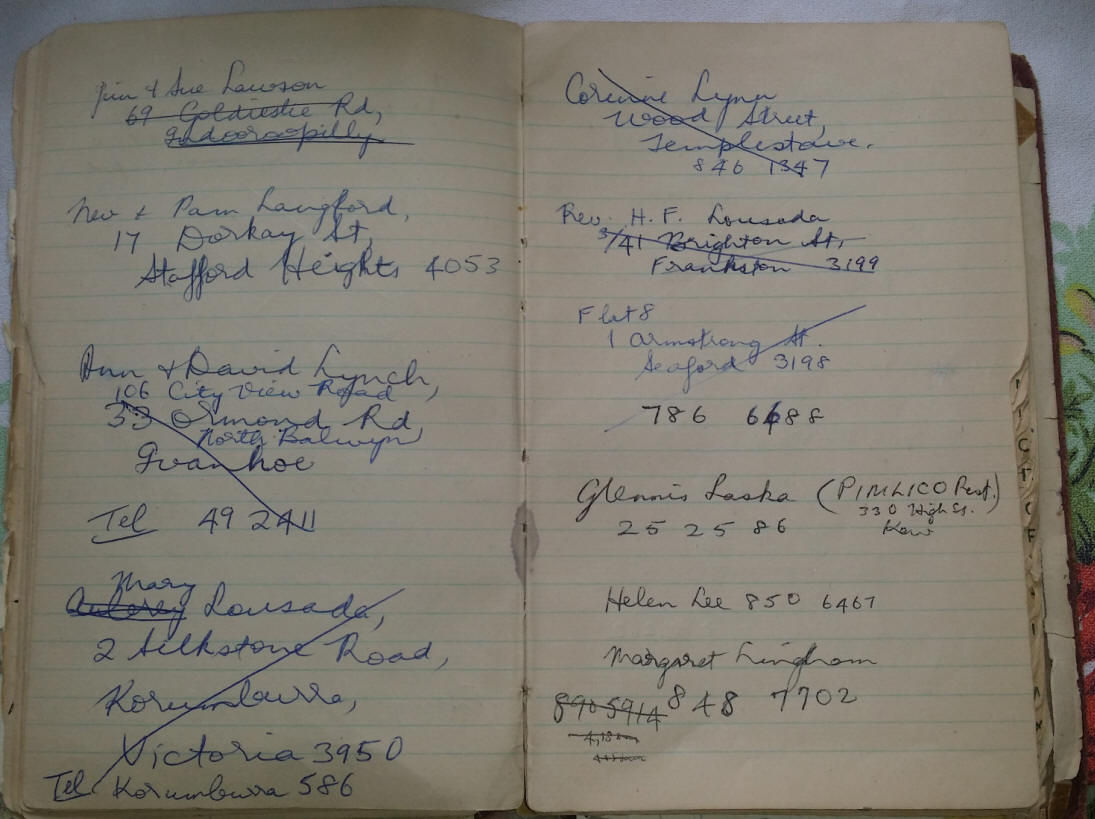 Jim & Sue Lawson
69 Goldieslie Rd,
Indooroopilly
Nev & Pam Langford,
17 Dorkay St,
Stafford Heights 4053
Ann & David Lynch,
106 City View Road
33 Ormond Rd,
North Balwyn
Ivanhoe
Tel 49 2411
Mary
Aubrey Lousada,
2 Silkstone Road,
Korumburra,
Victoria 3950
Tel Korumburra 586
Corinne Lynn
Wood Street,
Templestowe.
846 1347
Rev. H. F. Lousada
3/41 Brighton St,
Frankston 3199
Flat 8
1 Armstrong St.
Seaford 3198
786 6688
Glennis Laska (PIMLICO Rest.)
330 High St.
Kew
25 25 86
Helen Lee 850 6467
Margaret Lingham
890 5914 848 7702